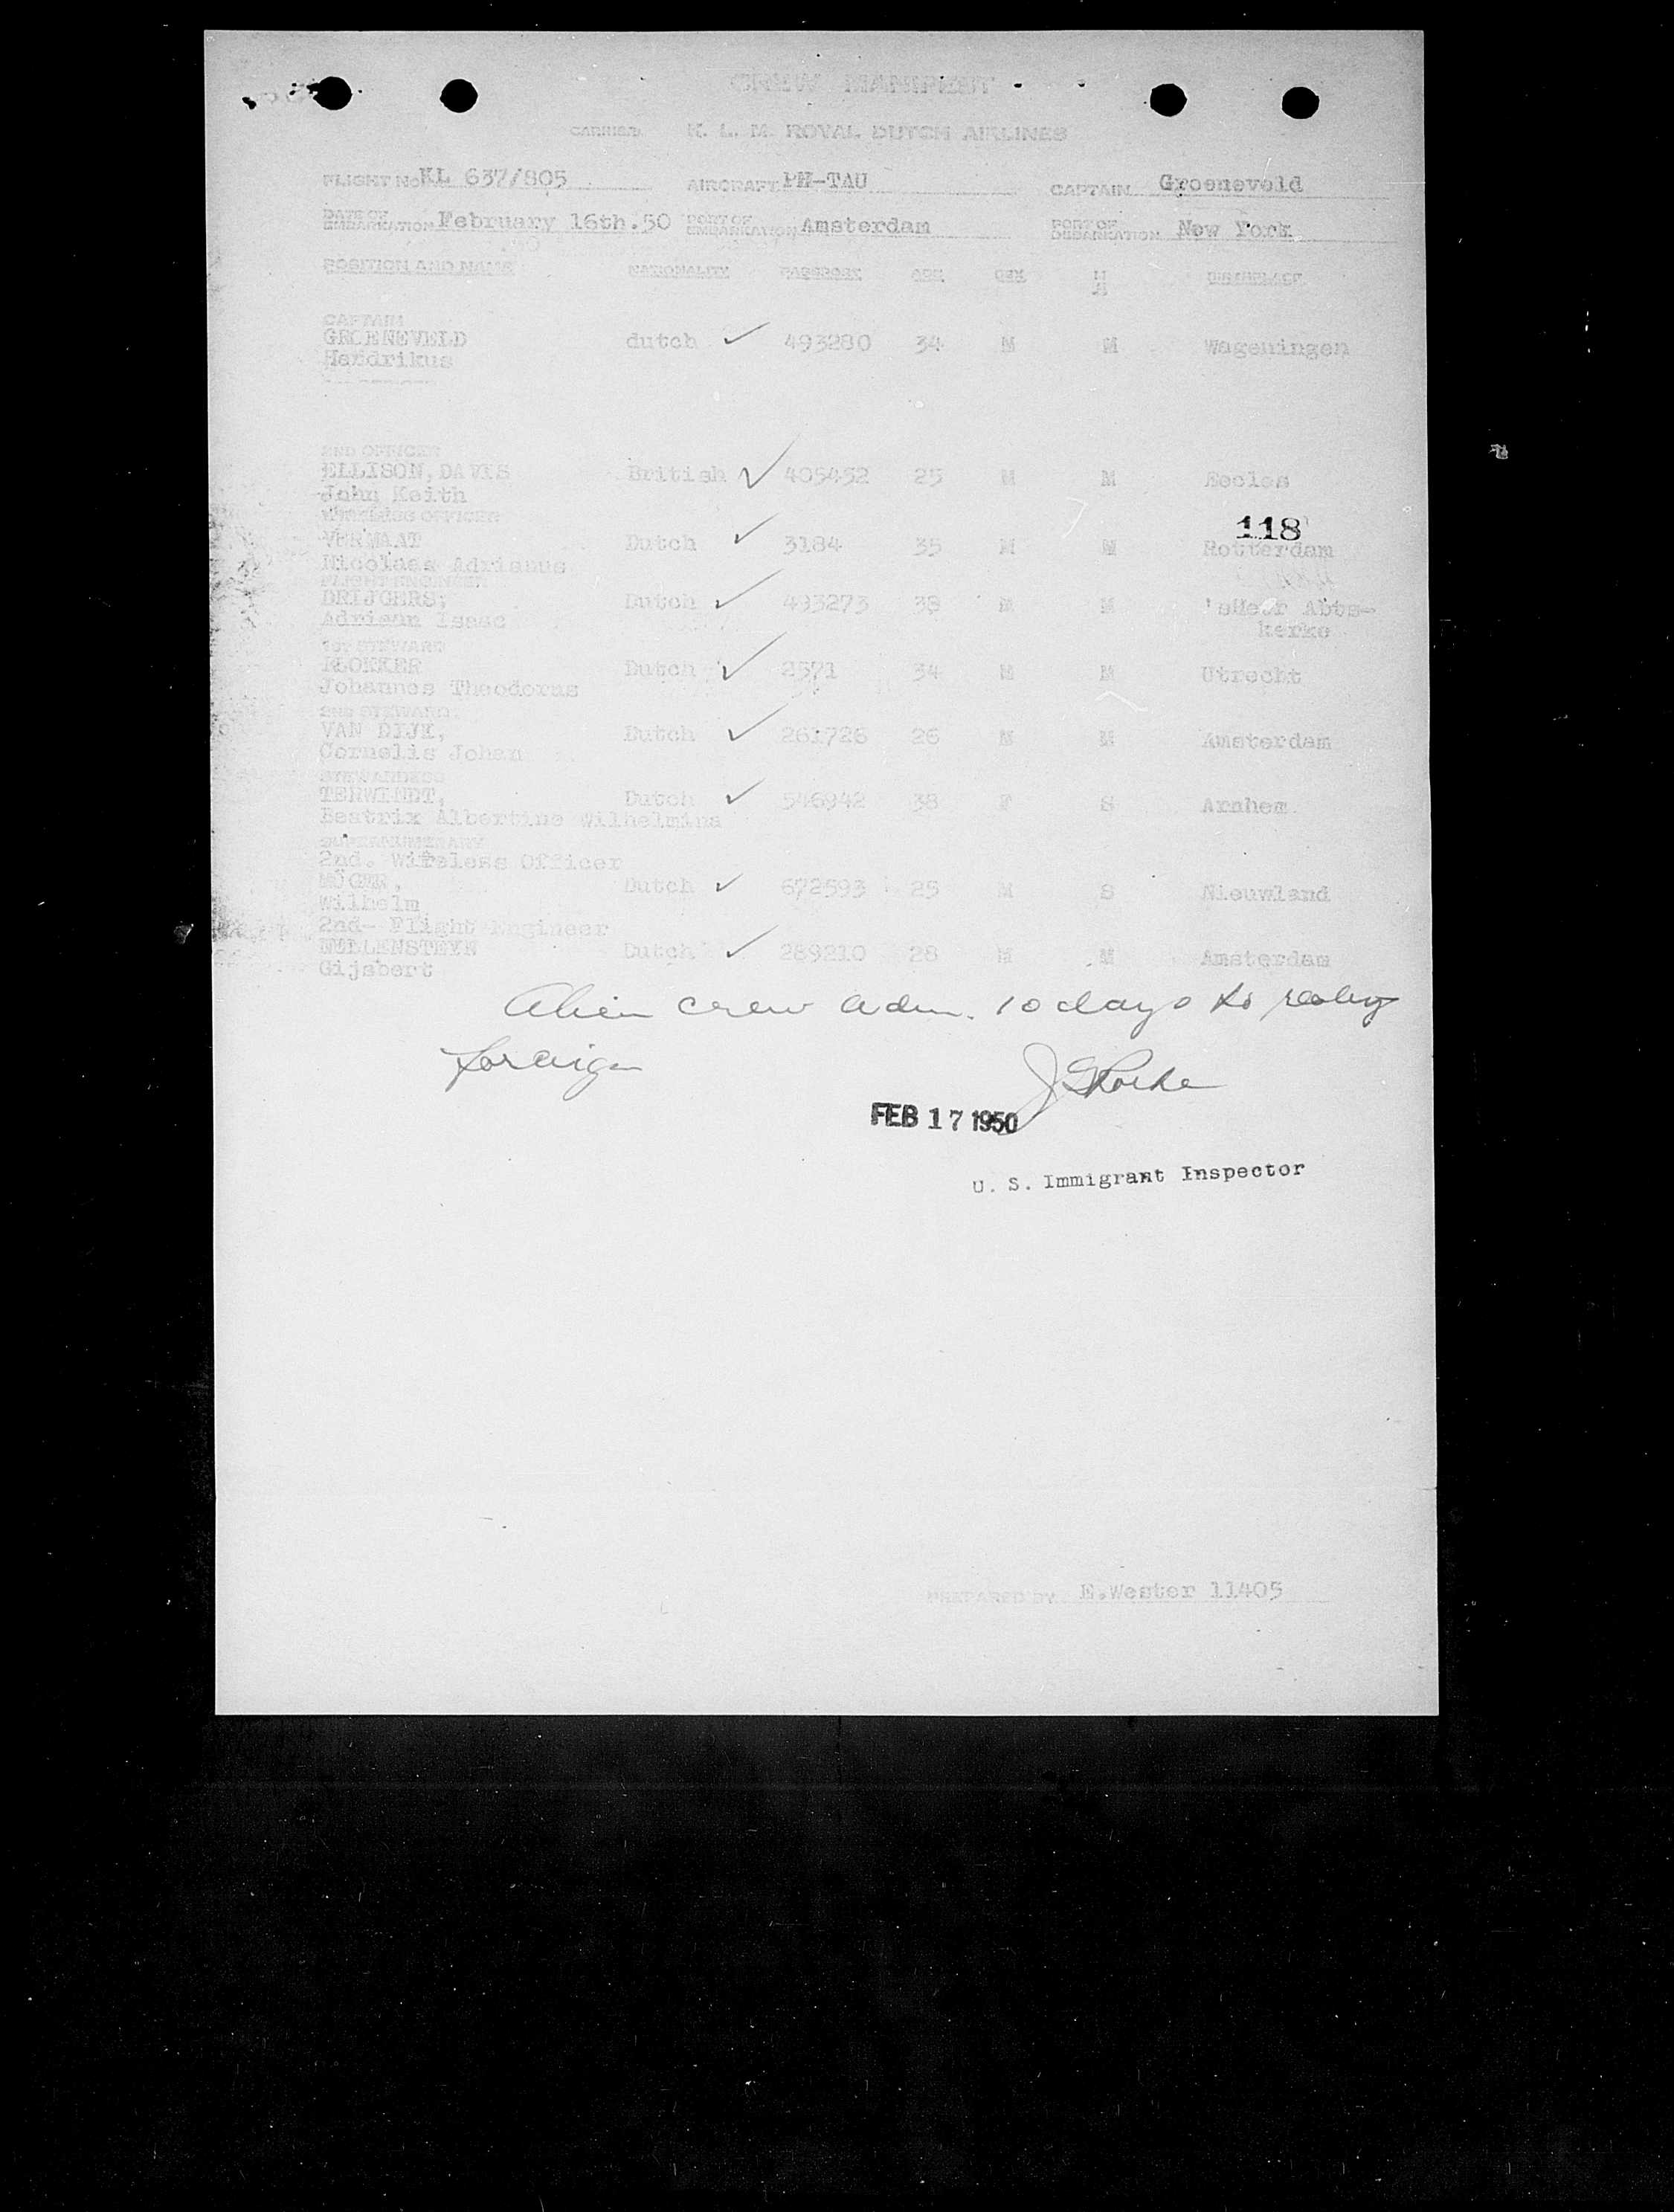 CREW MANIFEST
CARRIER K. L. M. ROYAL DUTCH AIRLINES
FLIGHT No KL 637/805 AIRCRAFT PH-TAU CAPTAIN Groeneveld
DATE OF EMBARKATION February 16th.50 PORT OF EMBARKATION Amsterdam PORT OF DEBARKATION New York
POSITION AND NAME NATIONALITY PASSPORT AGE SEX BIRTHPLACE
CAPTAIN
GROENEVELD dutch ✓ 493280 34 M M Wageningen
Hendrikus
2ND OFFICER
ELLISON, DAVIS British ✓ 405452 25 M M Eccles
John Keith
WIRELESS OFFICER 118
VERMAAT Dutch ✓ 3184 35 M M Rotterdam
Nicolaas Adrianus
FLIGHT ENGINEER
DRIJGERS, Dutch ✓ 493273 38 M M 'sHeer Abts-
Adriaan Isaac kerke
1ST STEWARD
KLOKKER Dutch ✓ 2571 34 M M Utrecht
Johannes Theodorus
2ND STEWARD
VAN DIJK, Dutch ✓ 261726 26 M M Amsterdam
Cornelis Johan
STEWARDESS
TERWINDT, Dutch ✓ 546942 38 F S Arnhem
Beatrix Albertine Wilhelmina
SUPERNUMERARY
2nd. Wireless Officer
Dutch ✓ 672593 25 M S Nieuwland
Wilhelm
2nd- Flight Engineer
MULLENSTEYN Dutch ✓ 289210 28 M M Amsterdam
Gijsbert
Alien crew adm. 10 days to
foreign
FEB 17 1950
U. S. Immigrant Inspector
PREPARED BY E.Wester 11405